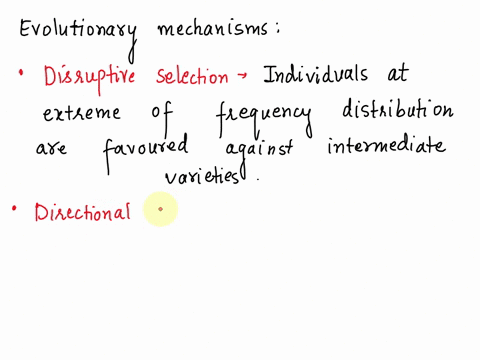 Evolutionary mechanisms:
• Disruptive selection → Individuals at
extreme of frequency distribution
are favoured against intermediate
varieties.
• Directional